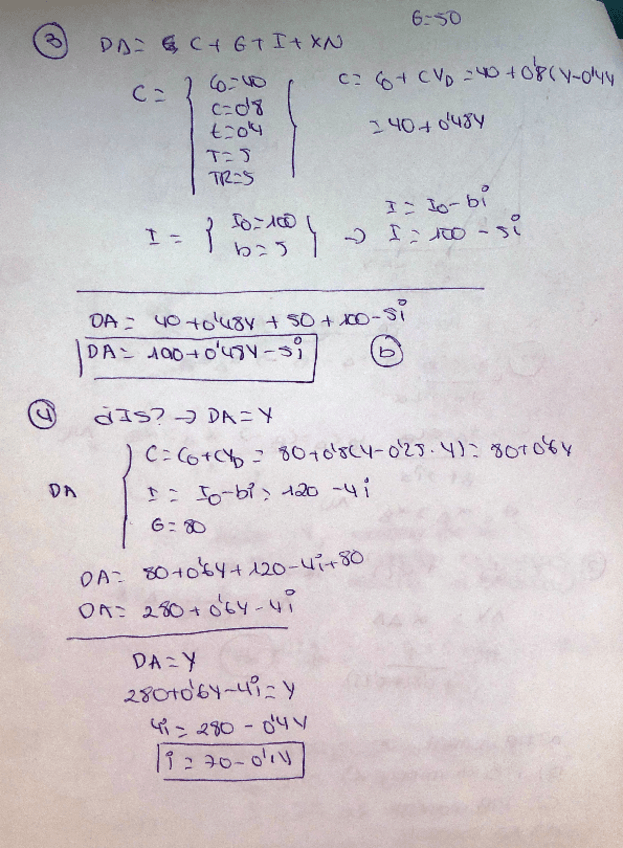 G=50
③ DA= C + G + I + XN
C = { C0=40
c=0'8
t=0'4
T=5
TR=5 }
C= C0 + CYD = 40 + 0'8(Y-0'4Y
= 40 + 0'48Y
I = { I0=100
b=5 } → I = I0 - bi
I = 100 - 5i
DA = 40 + 0'48Y + 50 + 100 - 5i
DA = 190 + 0'48Y - 5i ⓑ
④ dIS? → DA = Y
DA { C = C0 + CYD = 80 + 0'8(Y - 0'25·Y) = 80 + 0'6Y
I = I0 - bi = 120 - 4i
G = 80
DA = 80 + 0'6Y + 120 - 4i + 80
DA = 280 + 0'6Y - 4i
DA = Y
280 + 0'6Y - 4i = Y
4i = 280 - 0'4Y
i = 70 - 0'1Y